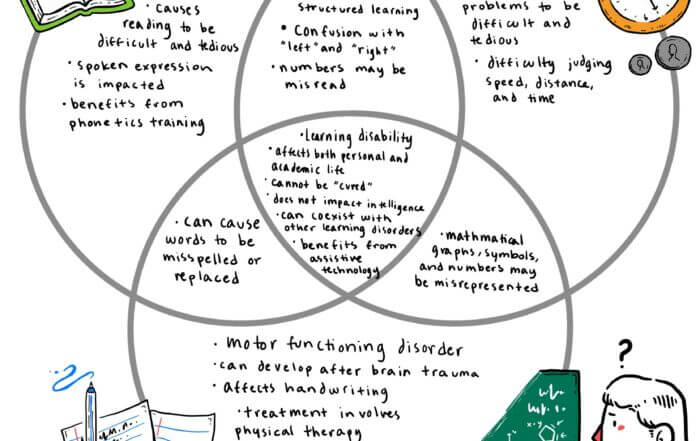 · causes
reading to be
difficult and tedious
· spoken expression
is impacted
· benefits from
phonetics training
structured learning
• Confusion with
"left" and "right"
· numbers may be
misread
problems to be
difficult and
tedious
· difficulty judging
speed, distance,
and time
· Learning disability
· affects both personal and
academic life
· cannot be "cured"
· does not impact intelligence
· can coexist with
other learning disorders
· benefits from
assistive
technology
· can cause
words to be
misspelled or
replaced
· mathmatical
graphs, symbols,
and numbers may
be misrepresented
· motor functioning disorder
· can develop after brain trauma
· affects handwriting
· treatment involves
physical therapy
?